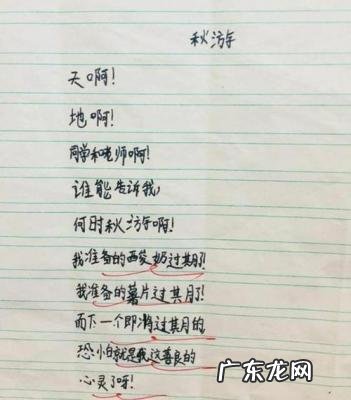 秋游
天啊！
地啊！
同学和老师啊！
谁能告诉我，
何时秋游啊！
我准备的西麦奶过其月了！
我准备的薯片过其月了！
而下一个即将过其月的，
恐怕就是我这善良的
心灵了呀！
广东龙网